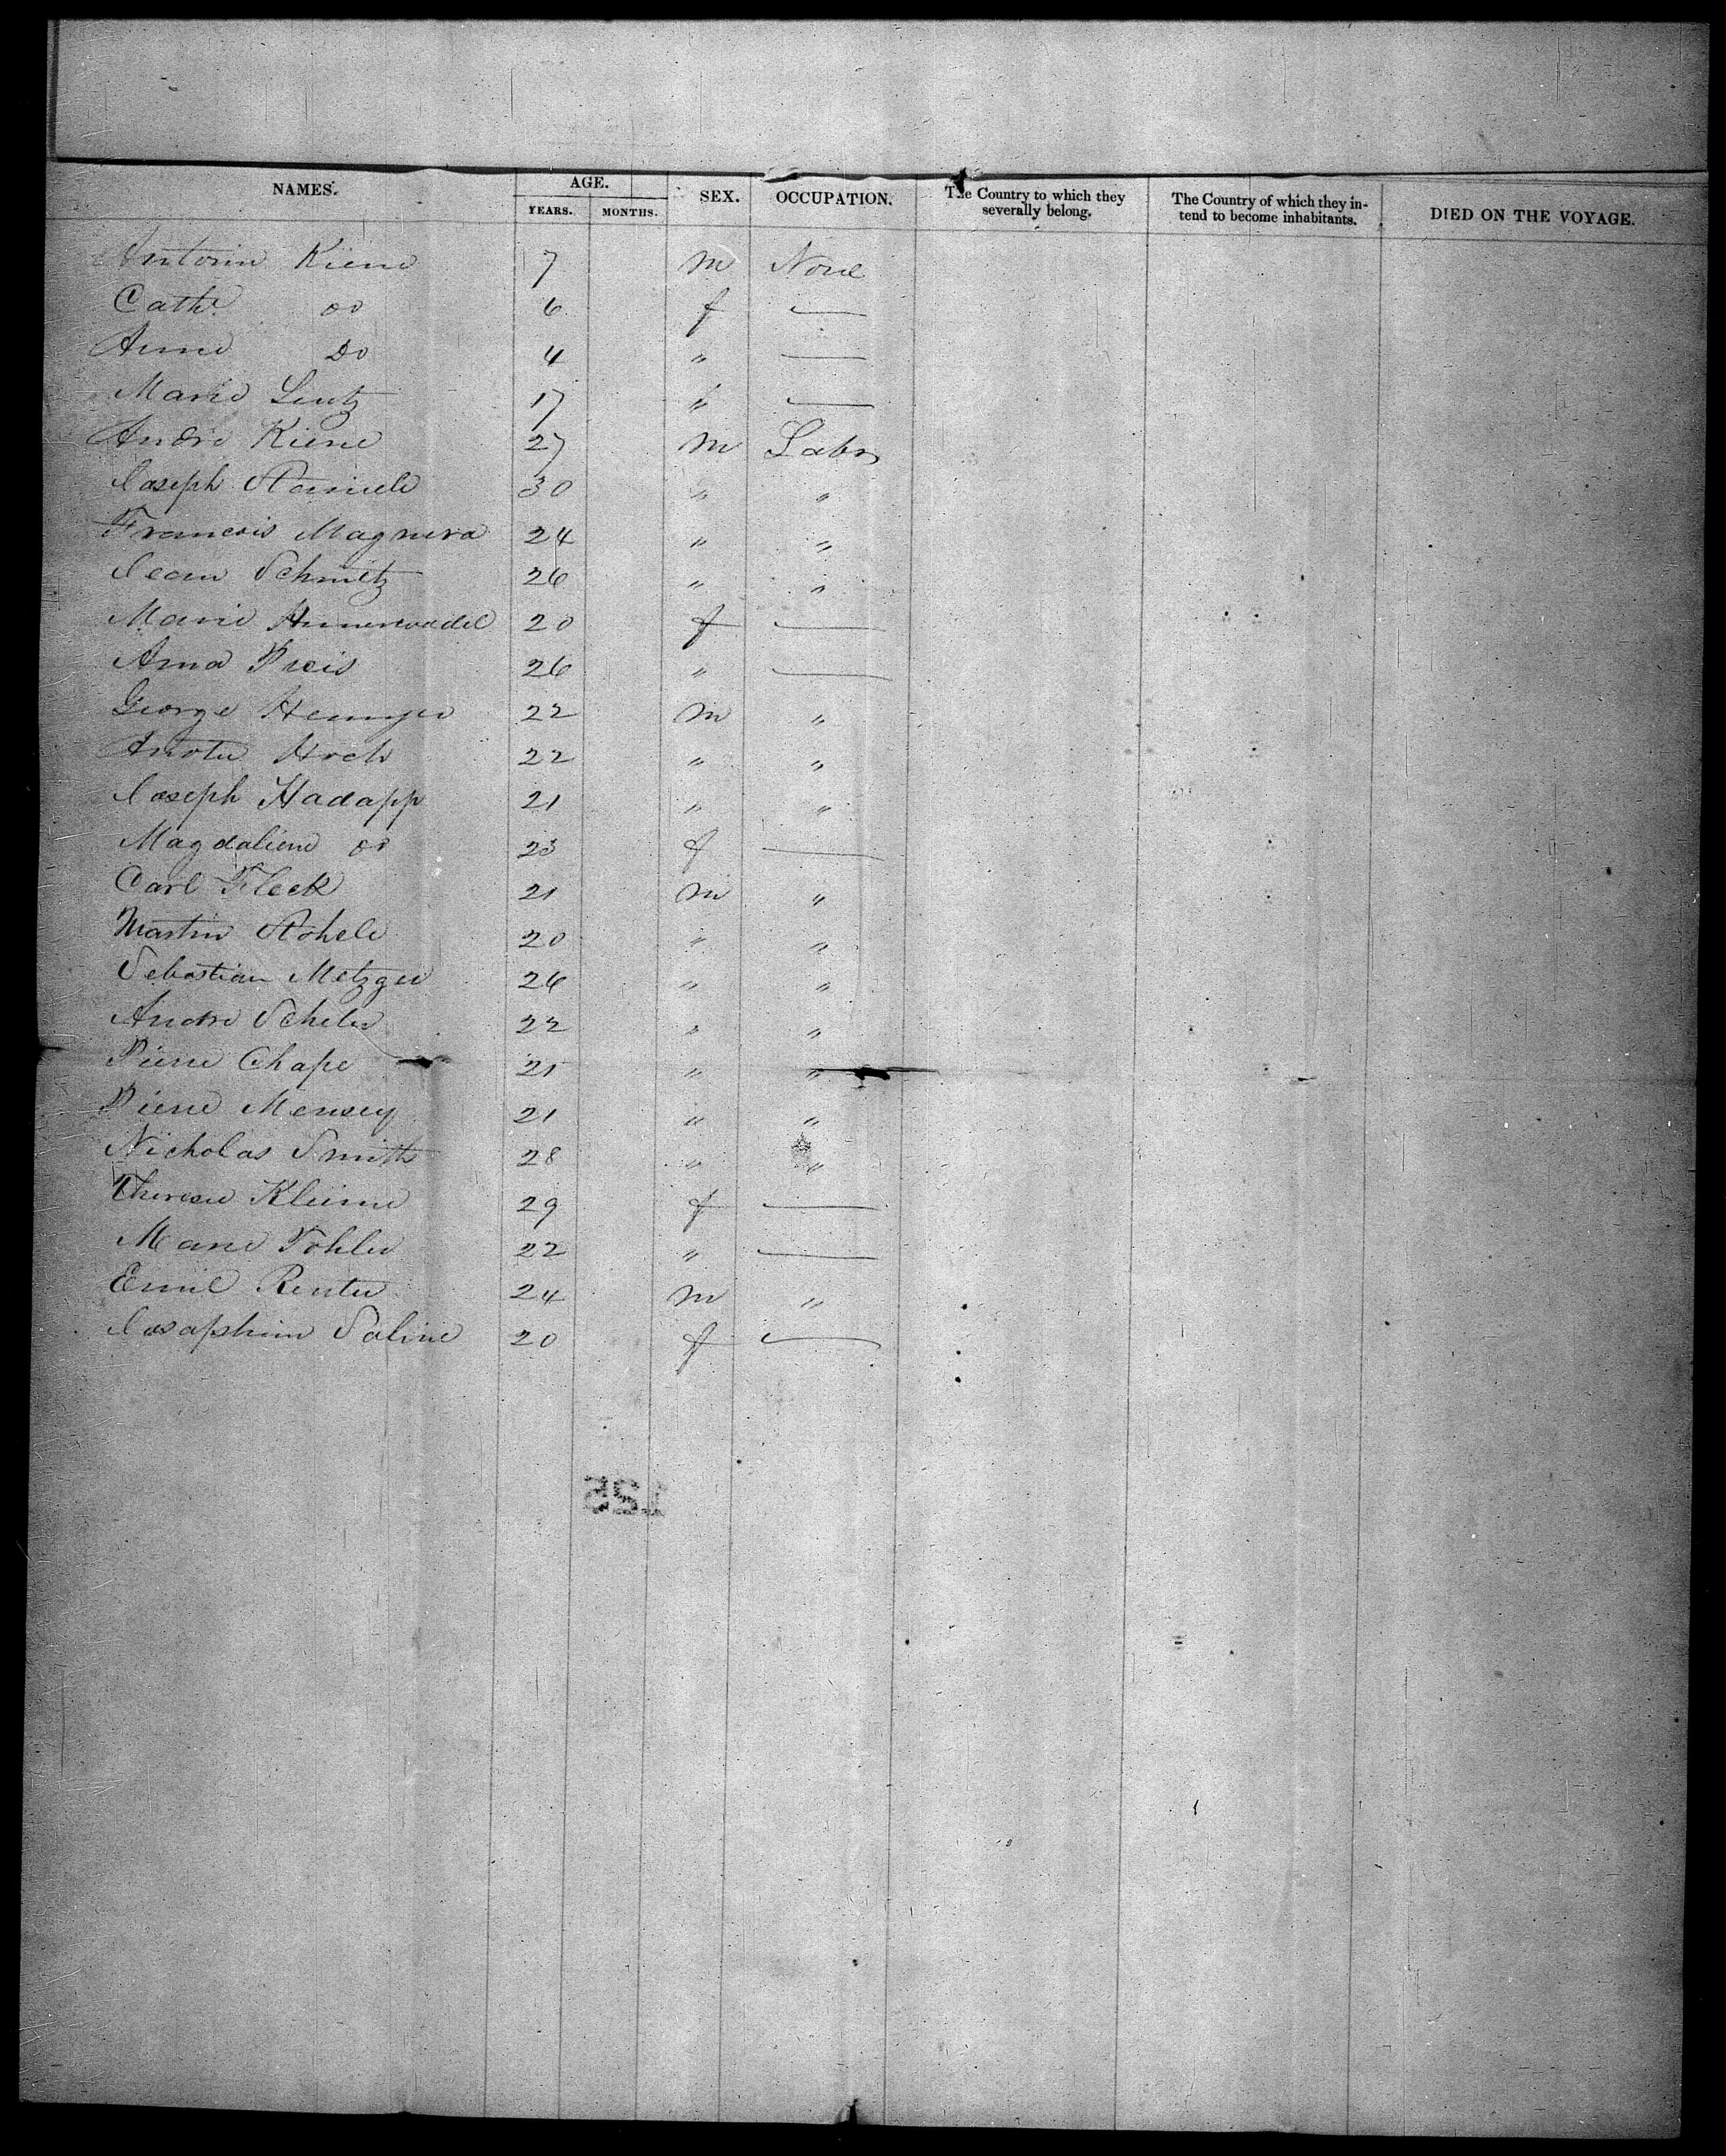 NAMES. AGE. SEX. OCCUPATION. The Country to which they severally belong. The Country of which they in-tend to become inhabitants. DIED ON THE VOYAGE.
YEARS. MONTHS.
Antoin Kiene 7 m None
Cathe do 6 f —
Anne Do 4 " —
Marie Lentz 17 " —
Andre Kiene 27 m Labr
Joseph 30 " "
Francois 24 " "
Jean Schmitz 26 " "
Marie 20 f —
Anna 26 " —
George 22 m "
22 " "
Joseph Hadapp 21 " "
Magdaliene do 23 f —
Carl Fleck 21 m "
Martin 20 " "
Sebastian Metzger 26 " "
Andre Scheler 22 " "
Pierre Chape 21 " "
Pierre 21 " "
Nicholas Smith 28 " "
Therese Kleine 29 f —
Marie Tohler 22 " —
Emil Renter 24 m "
Josaphin Saline 20 f —
125